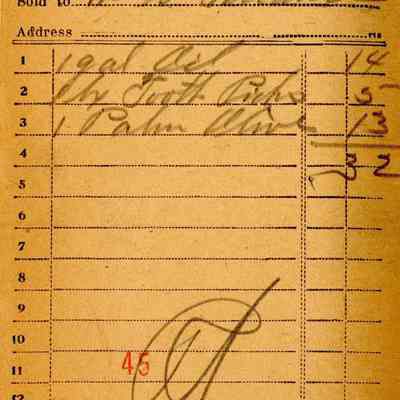 Sold to
Address
1 1 gal Oil 14
2 1 bx Tooth Picks 5
3 1 Palm Olive 13
4 32
5
6
7
8
9
10
45
11
12